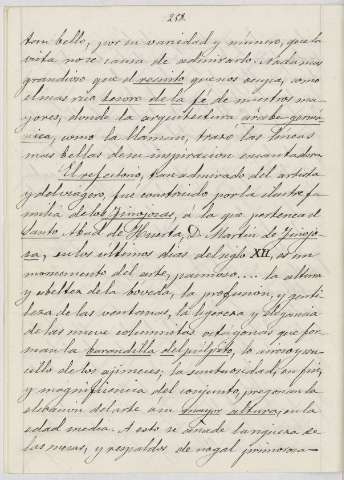 258.
tan bello, por su variedad y número, que la
vista no se cansa de admirarlo. Nada mas
grandioso que el recinto que nos ocupa, como
el mas rico tesoro de la fé de nuestros ma-
yores, donde la arquitectura arabe-germa-
nica, como la llaman, trazo las lineas
mas bellas de su inspiracion encantadora
El refectorio, tan admirado del artista
y del viagero, fué construido por la ilustre fa-
milia de los Finojosas, a la que pertenece el
Santo Abad de Huerta, D. Martin de Finojo-
sa, en los ultimos dias del siglo XII, es un
momento del arte, pasmoso.... la altura
y esbeltez de la boveda, la profusion, y genti-
leza de las ventanas, la ligereza y elegancia
de las nueve columnitas octogonas que for-
man la barandilla del púlpito, lo airoso y sen-
cillo de los ajimeces; la suntuosidad, en fin,
y magnificencia del conjunto, pregonan la
elevacion del arte a su mayor altura, en la
edad media. A esto se añade la anguera de
las mesas, y respaldos de nogal primorosa-